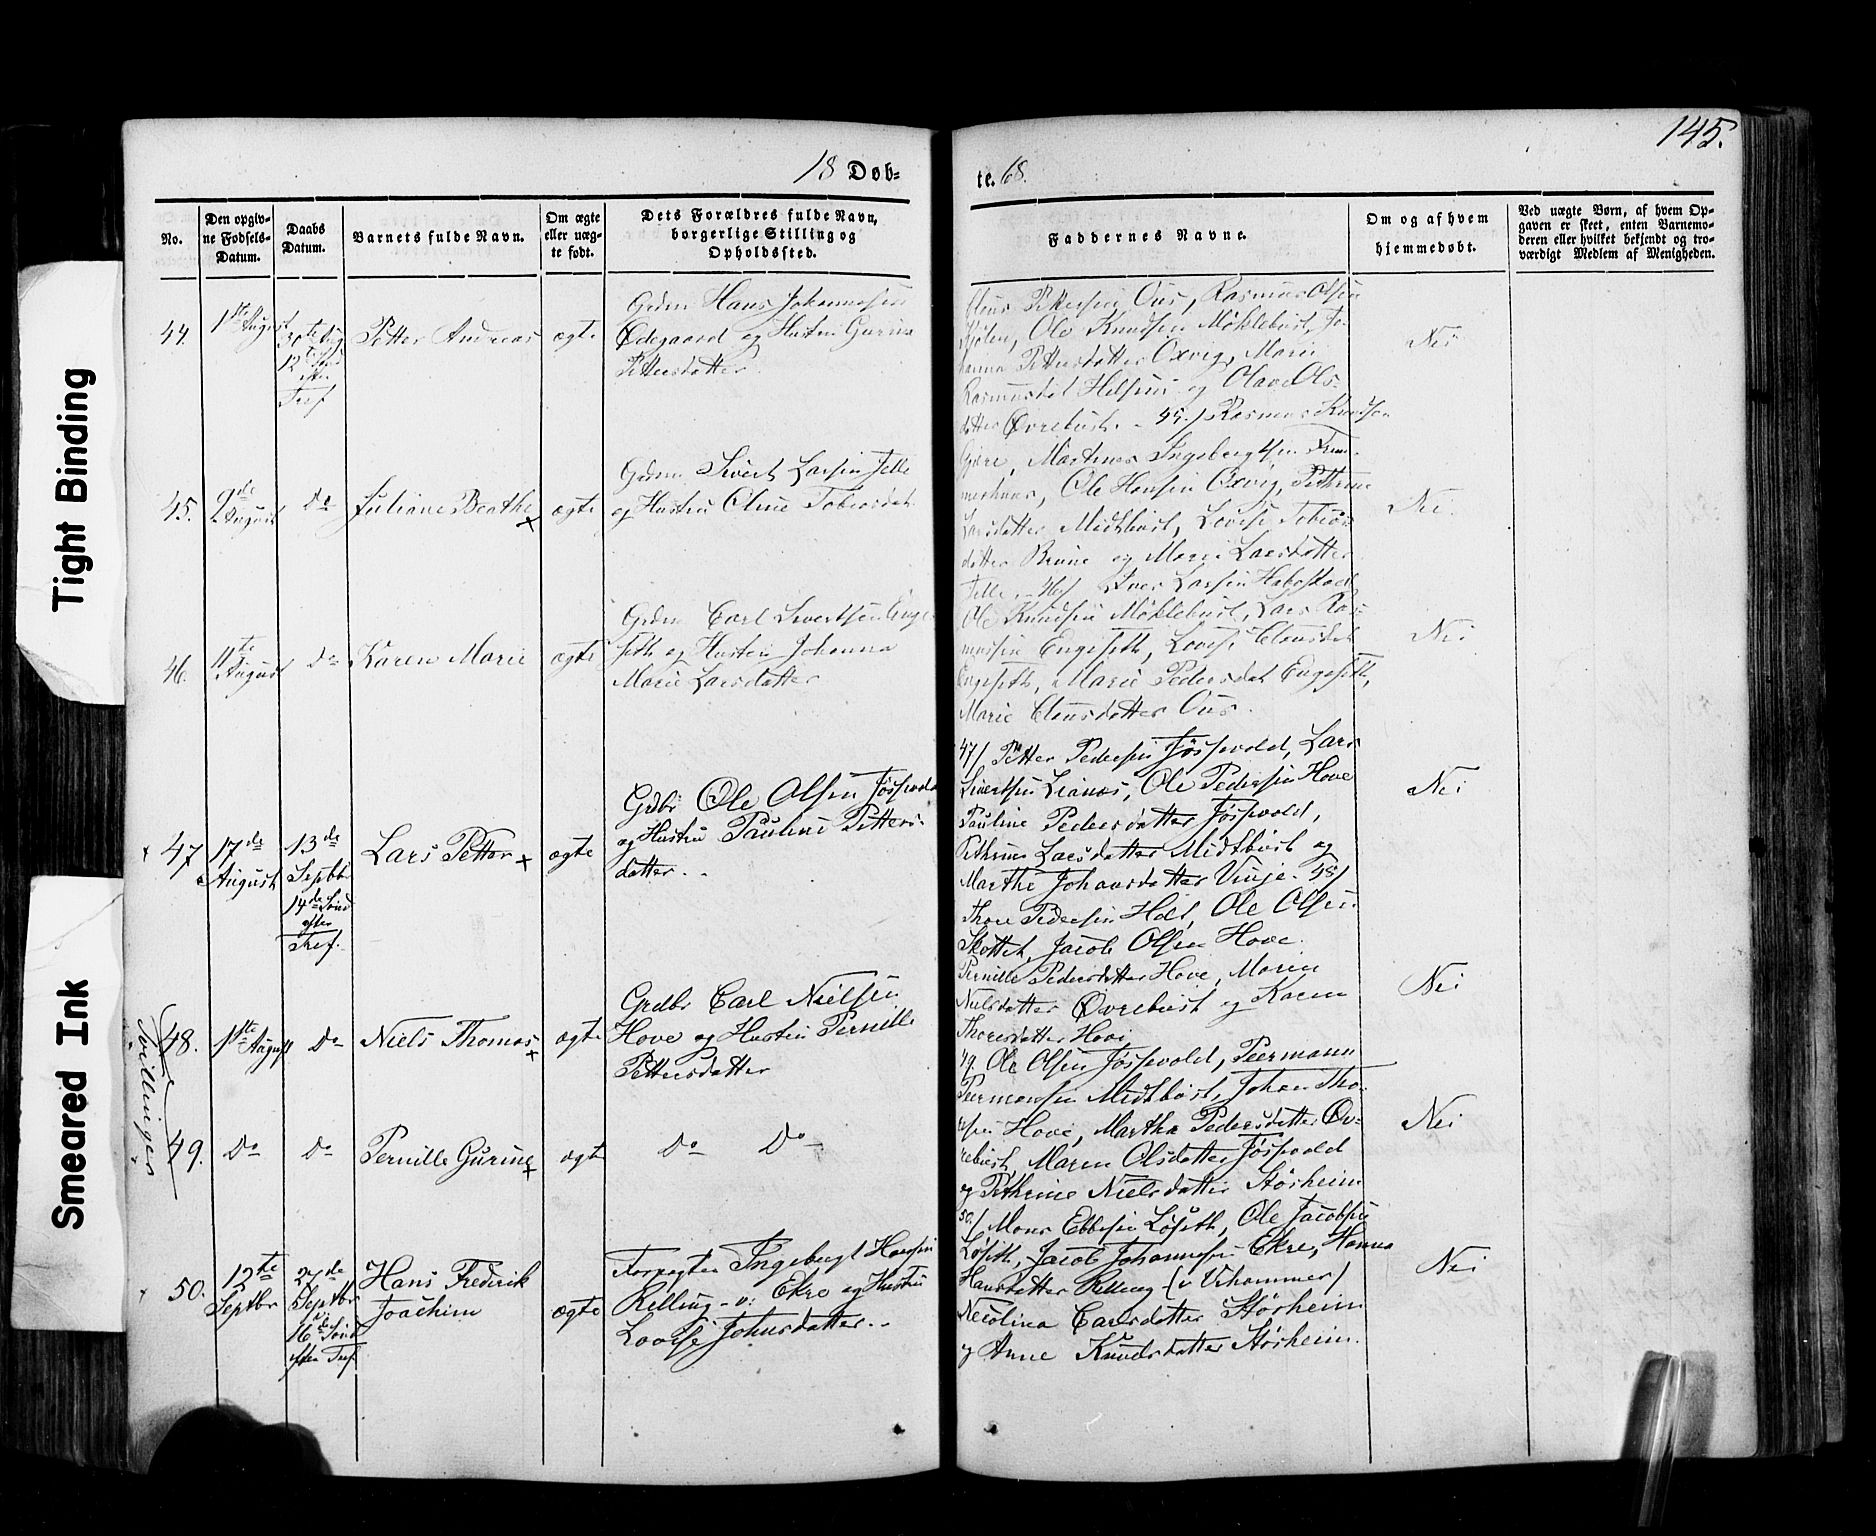 145.
18 Døb=
te. 68.
No.
Den opgiv-
ne Fødsels-
Datum.
Daabs
Datum.
Barnets fulde Navn.
Om ægte
eller uæg-
te født.
Dets Forældres fulde Navn,
borgerlige Stilling og
Opholdssted.
Faddernes Navne.
Om og af hvem
hjemmedøbt.
Ved uægte Børn, af hvem Op-
gaven er skeet, enten Barnemo-
deren eller hvilket bekjendt og tro-
værdigt Medlem af Menigheden.
Tight Binding
Smeared Ink
44.
1ste August
30te Aug
12te Sønd
efter
Tref
Petter Andreas
ægte
Grdm Hans Johannesen
Ødegaard og Hustru Gurine
Pettersdatter
Petersen Ous, Rasmus Olsen
Ole Knudsen Møklebust, Jo-
hanna Pettersdatter Oxvig, Marie
Rasmusdat og Olave Ols-
datter Øvrebust. - 45/ Rasmus Knudsen
Nei
45.
9de
August
Do
Juliane Beathe
ægte
Grdm Sivert Larsen Jelle
og Hustru Oline Tobiasdat
Gjære, Martinus Ingebergtsen
Ole Hansen Oxvig, Pethrine
Larsdatter Midtbust, Lovise Tobias-
datter Brune og Marie Larsdatter
Jelle. - 46/ Iver Larsen Habostad
Nei.
46.
11te
August
Do
Karen Marie
ægte
Grdm Carl Sivertsen Enge-
seth og Hustru Johanna
Marie Larsdatter
Ole Knudsen Møklebust, Lars Ras-
mussen Engeseth, Lovise Clausdat
Engeseth, Marie Pedersdat Engeseth,
Marie Clausdatter Ous.
Nei
47
17de
August
13de
Septbr
14de Sønd
efter
Tref.
Lars Petter
ægte
Grdbr Ole Olsen Jøsvold
og Hustru Pauline Petters-
datter. -
47/ Petter Pedersen Jøsvold, Lars
Sivertsen Lianes, Ole Pedersen Hove
Pauline Pedersdatter Jøsvold,
Pethrine Larsdatter Midtbust og
Marthe Johansdatter Vinje - 48/
Nei
Tvillinger
48.
1ste August
Do
Niels Thomas
ægte
Grdbr Carl Nielsen
Hove og Hustru Pernille
Pettersdatter
Thore Pedersen Holt, Ole Olsen
Skottet, Jacob Olsen Hove.
Pernille Pedersdatter Hove, Maren
Nielsdatter Øvrebust og Karen
Thoresdatter Hove
Nei
49.
Do
Do
Pernille Gurine
ægte
Do Do
49. Ole Olsen Jøsvold, Peermann
Peermansen Midtbust, Johan Tho-
resen Hove, Martha Pedersdatter Øv-
rebust, Maren Olsdatter Jøsvold
og Pethrine Nielsdatter Storheim
Nei
50.
12te
Septbr
27de
Septbr
16de Sønd
efter Tref
Hans Frederik
Joachim
ægte
Forpagter Ingebregt Hansen
Relling - v: Ekre og Hustru
Lovise Johnsdatter. -
50/ Mons Ebbesen Løseth, Ole Jacobsen
Løseth, Jacob Johannesen Ekre, Hanna
Hansdatter Relling (i Vihammer)
Nicolina Carlsdatter Storheim
og Anne Knudsdatter Storheim.
Nei